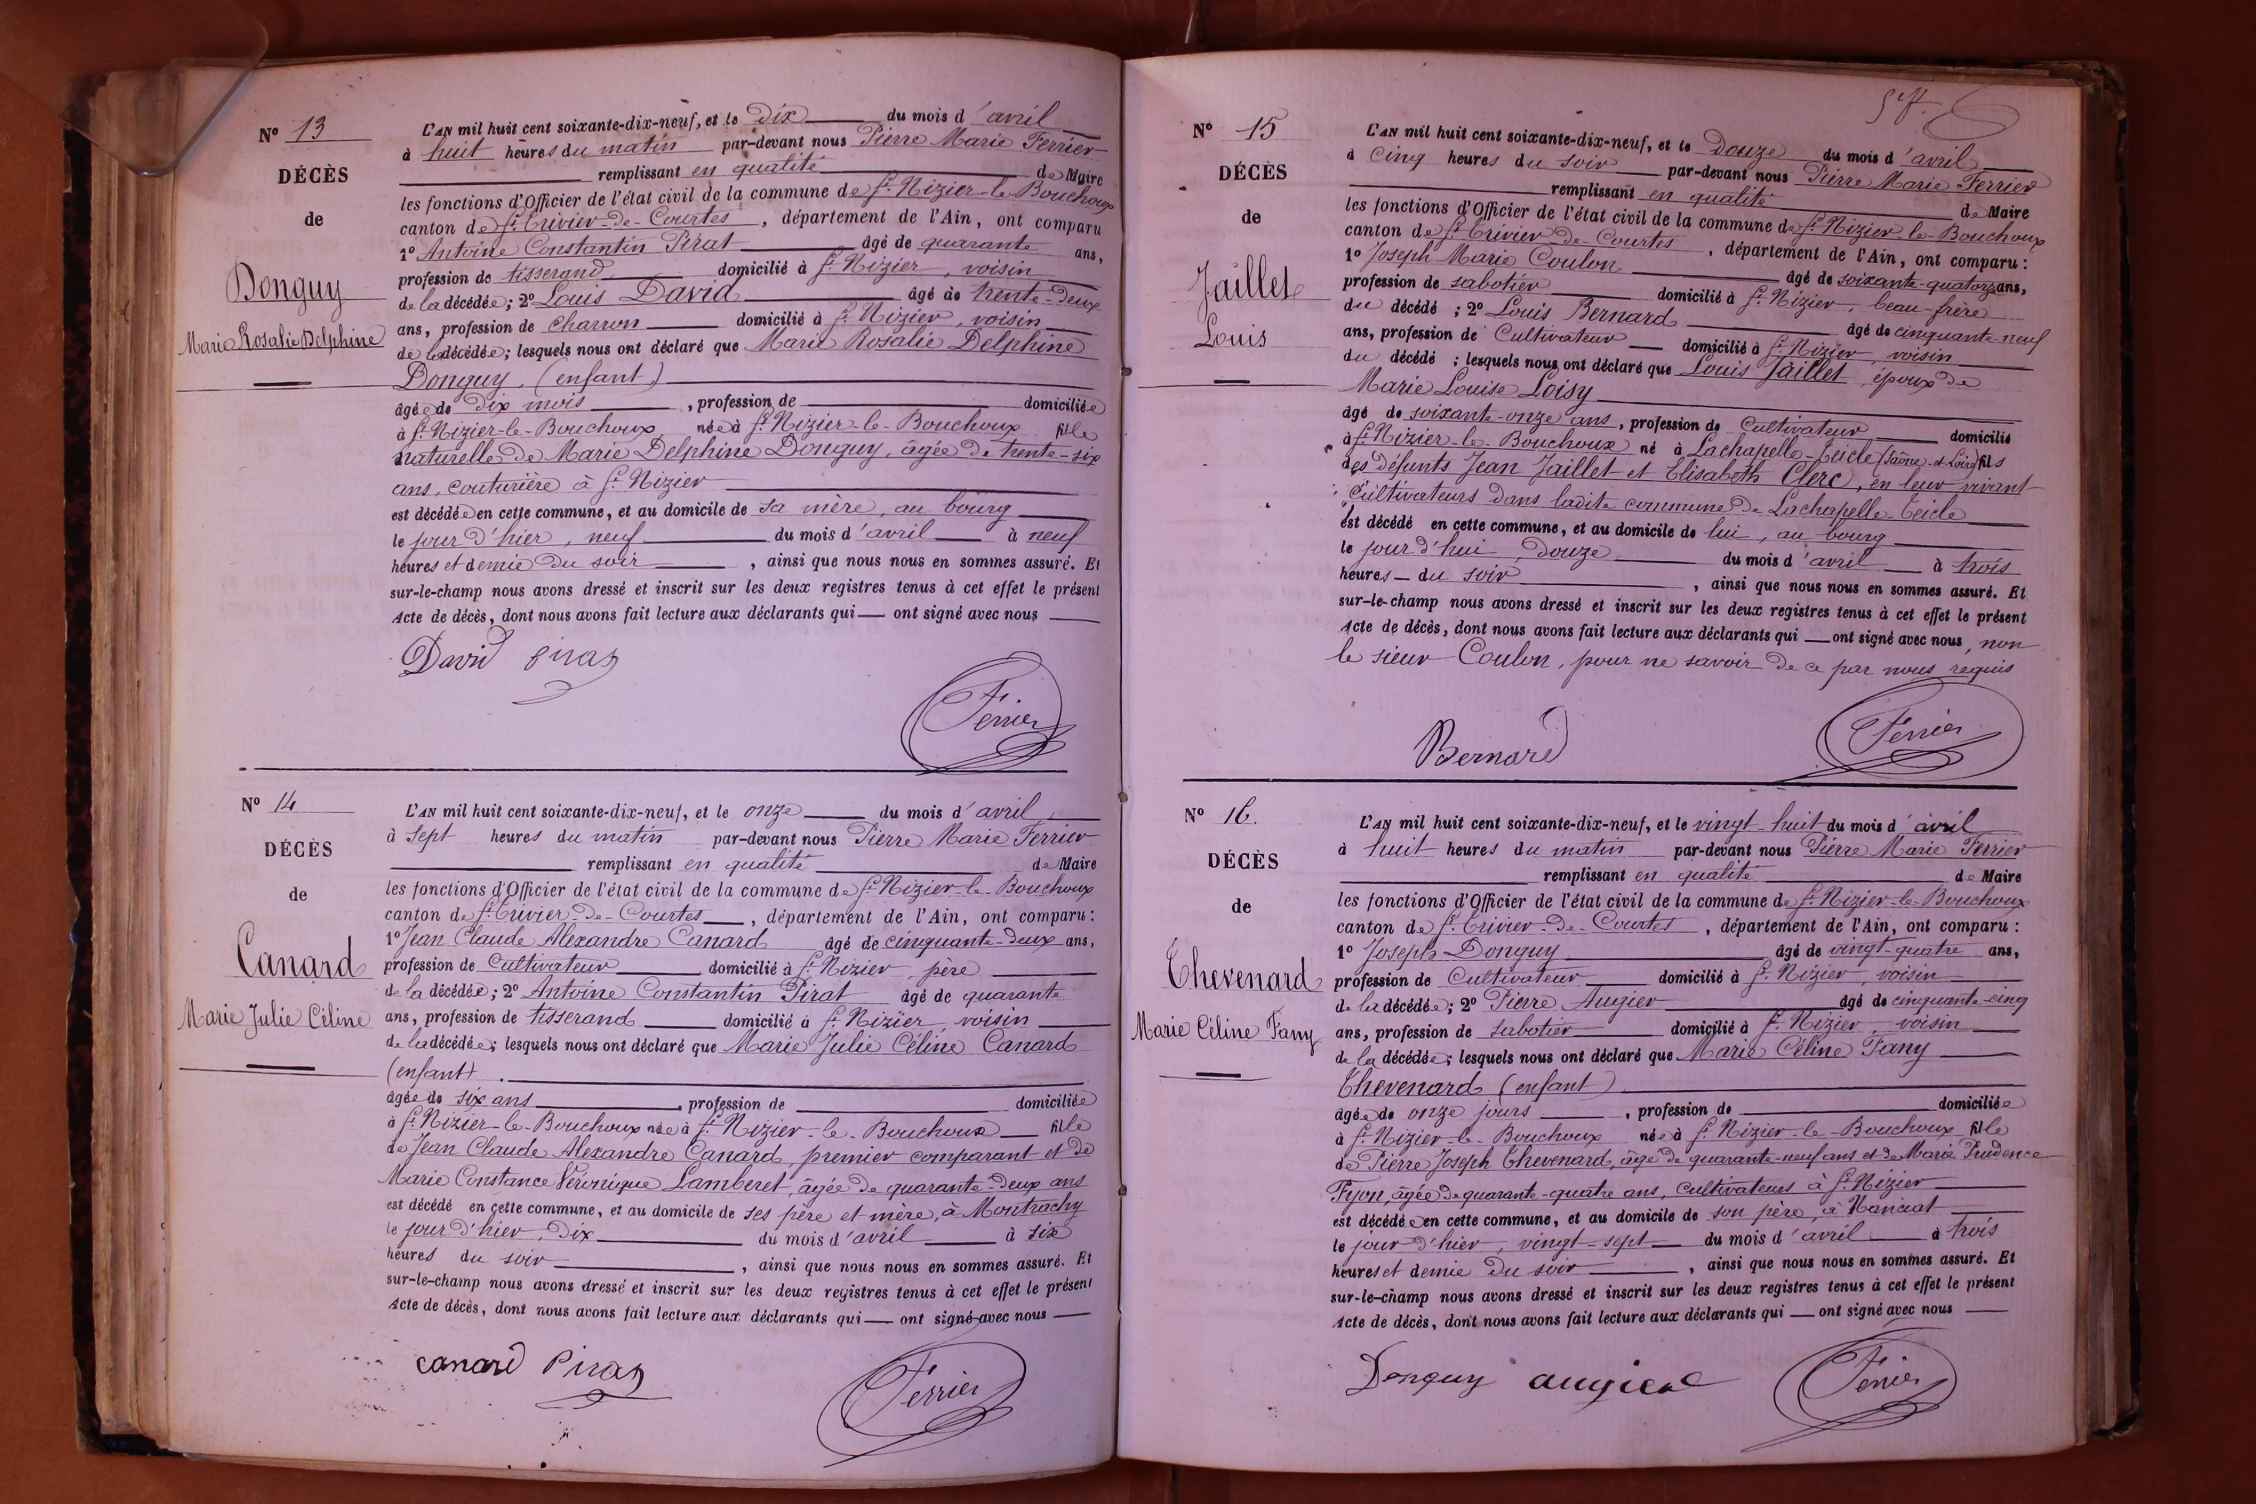 N° 13
DÉCÈS
de
Donguy
Marie Rosalie Delphine
L'AN mil huit cent soixante-dix-neuf, et le dix du mois d'avril
à huit heures du matin par-devant nous Pierre Marie Ferrier
remplissant en qualité de Maire
les fonctions d'Officier de l'état civil de la commune de St Nizier-le-Bouchoux
canton de St Trivier-de-Courtes, département de l'Ain, ont comparu
1° Antoine Constantin Pirat âgé de quarante ans,
profession de tisserand domicilié à St Nizier, voisin
de la décédée; 2° Louis David âgé de trente-deux
ans, profession de charron domicilié à St Nizier, voisin
de la décédée; lesquels nous ont déclaré que Marie Rosalie Delphine
Donguy, (enfant)
âgée de dix mois, profession de domiciliée
à St Nizier-le-Bouchoux née à St Nizier-le-Bouchoux fille
naturelle de Marie Delphine Donguy, âgée de trente-six
ans, couturière à St Nizier
est décédée en cette commune, et au domicile de sa mère, au bourg
le jour d'hier, neuf du mois d'avril à neuf
heures et demie du soir, ainsi que nous nous en sommes assuré. Et
sur-le-champ nous avons dressé et inscrit sur les deux registres tenus à cet effet le présent
Acte de décès, dont nous avons fait lecture aux déclarants qui — ont signé avec nous
David Pirat
Ferrier
N° 14
DÉCÈS
de
Canard
Marie Julie Céline
L'AN mil huit cent soixante-dix-neuf, et le onze du mois d'avril
à sept heures du matin par-devant nous Pierre Marie Ferrier
remplissant en qualité de Maire
les fonctions d'Officier de l'état civil de la commune de St Nizier-le-Bouchoux
canton de St Trivier-de-Courtes, département de l'Ain, ont comparu:
1° Jean Claude Alexandre Canard âgé de cinquante-deux ans,
profession de Cultivateur domicilié à St Nizier, père
de la décédée; 2° Antoine Constantin Pirat âgé de quarante
ans, profession de tisserand domicilié à St Nizier, voisin
de la décédée; lesquels nous ont déclaré que Marie Julie Céline Canard
(enfant).
âgée de six ans, profession de domiciliée
à St Nizier-le-Bouchoux née à St Nizier-le-Bouchoux fille
de Jean Claude Alexandre Canard, premier comparant et de
Marie Constance Véronique Lamberet, âgée de quarante-deux ans
est décédé en cette commune, et au domicile de ses père et mère, à Montrachy
le jour d'hier, dix du mois d'avril à six
heures du soir, ainsi que nous nous en sommes assuré. Et
sur-le-champ nous avons dressé et inscrit sur les deux registres tenus à cet effet le présent
Acte de décès, dont nous avons fait lecture aux déclarants qui — ont signé avec nous
Canard Pirat
Ferrier
N° 15
DÉCÈS
de
Jaillet
Louis
L'AN mil huit cent soixante-dix-neuf, et le Douze du mois d'avril
à cinq heures du soir par-devant nous Pierre Marie Ferrier
remplissant en qualité de Maire
les fonctions d'Officier de l'état civil de la commune de St Nizier-le-Bouchoux
canton de St Trivier-de-Courtes, département de l'Ain, ont comparu:
1° Joseph Marie Coulon âgé de soixante-quatorze ans,
profession de sabotier domicilié à St Nizier, beau-frère
du décédé; 2° Louis Bernard âgé de cinquante-neuf
ans, profession de Cultivateur domicilié à St Nizier, voisin
du décédé; lesquels nous ont déclaré que Louis Jaillet, époux de
Marie Louise Loisy
âgé de soixante-onze ans, profession de Cultivateur domicilié
à St Nizier-le-Bouchoux né à Lachapelle-Teicle (Saône-et-Loire) fils
des défunts Jean Jaillet et Elisabeth Clerc, en leur vivant
Cultivateurs dans ladite commune de Lachapelle-Teicle
est décédé en cette commune, et au domicile de lui, au bourg
le jour d'hui, douze du mois d'avril à trois
heures du soir, ainsi que nous nous en sommes assuré. Et
sur-le-champ nous avons dressé et inscrit sur les deux registres tenus à cet effet le présent
Acte de décès, dont nous avons fait lecture aux déclarants qui — ont signé avec nous, non
le sieur Coulon, pour ne savoir de ce par nous requis
Bernard
Ferrier
N° 16.
DÉCÈS
de
Thevenard
Marie Céline Fany
L'AN mil huit cent soixante-dix-neuf, et le vingt-huit du mois d'avril
à huit heures du matin par-devant nous Pierre Marie Ferrier
remplissant en qualité de Maire
les fonctions d'Officier de l'état civil de la commune de St Nizier-le-Bouchoux
canton de St Trivier-de-Courtes, département de l'Ain, ont comparu:
1° Joseph Donguy âgé de vingt-quatre ans,
profession de Cultivateur domicilié à St Nizier, voisin
de la décédée; 2° Pierre Augier âgé de cinquante-cinq
ans, profession de sabotier domicilié à St Nizier, voisin
de la décédée; lesquels nous ont déclaré que Marie Céline Fany
Thevenard (enfant)
âgée de onze jours, profession de domiciliée
à St Nizier-le-Bouchoux née à St Nizier-le-Bouchoux fille
de Pierre Joseph Thevenard, âgé de quarante-neuf ans et de Marie Prudence
Fyon, âgée de quarante-quatre ans, Cultivateurs à St Nizier
est décédée en cette commune, et au domicile de son père, à Nanciat
le jour d'hier, vingt-sept du mois d'avril à trois
heures et demie du soir, ainsi que nous nous en sommes assuré. Et
sur-le-champ nous avons dressé et inscrit sur les deux registres tenus à cet effet le présent
Acte de décès, dont nous avons fait lecture aux déclarants qui — ont signé avec nous
Donguy augier
Ferrier